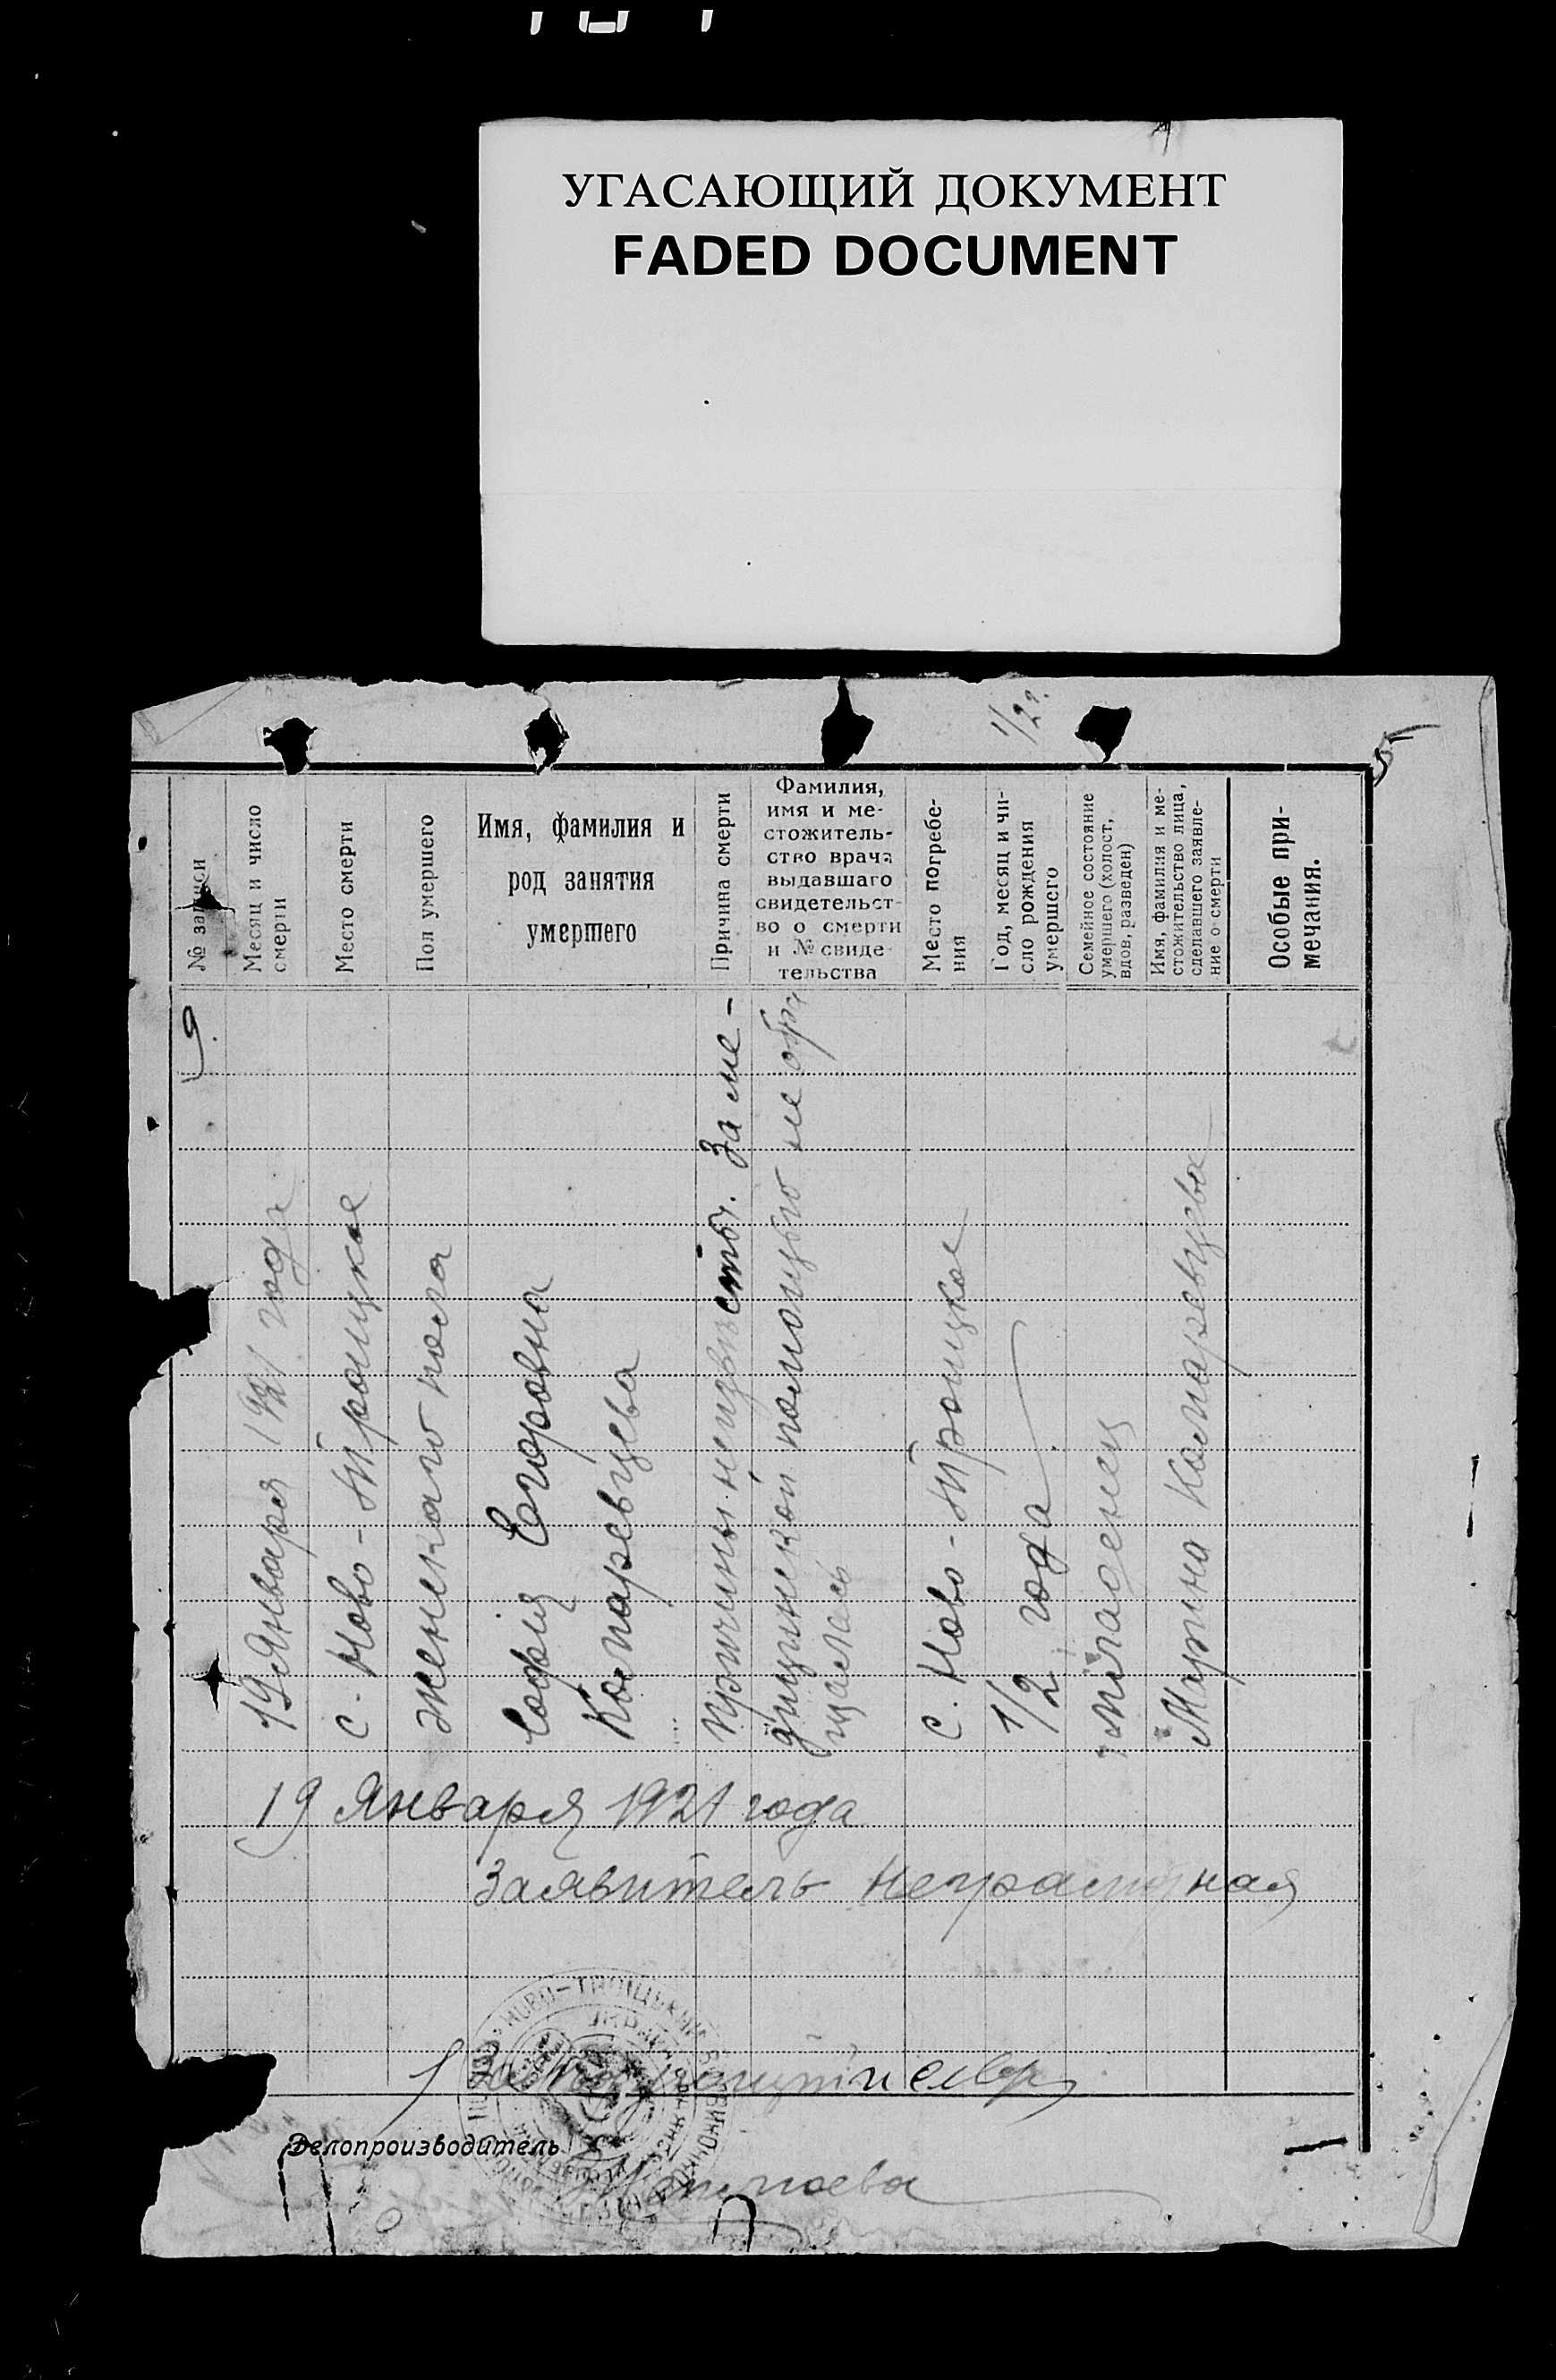 УГАСАЮЩИЙ ДОКУМЕНТ
FADED DOCUMENT
1/2 г.
5
№ записи
Месяц и число
смерти
Место смерти
Пол умершего
Имя, фамилия и
род занятия
умершего
Причина смерти
Фамилия,
имя и ме-
стожитель-
ство врача
выдавшаго
свидетельст-
во о смерти
и № свиде-
тельства
Место погребе-
ния
Год, месяц и чи-
сло рождения
умершего
Семейное состояние
умершего (холост,
вдов, разведен)
Имя, фамилия и ме-
стожительство лица,
сделавшего заявле-
ние о смерти
Особые при-
мечания.
9.
19 Января 1921 года
с. Ново-Троицкое
Женскаго пола
София Егоровна
Компаревцева
причины неизвест. За ме-
дицинской помощью не обра
щалась
с. Ново-Троицкое
1/2 года
младенец
Марина Компаревцева
19 Января 1921 года
Заявитель неграмотная
НОВО-ТРОИЦЬКИЙ
Делопроизводитель